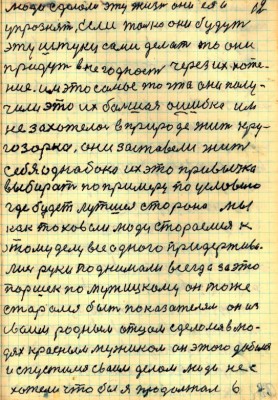 люди сделали эту жизн они ея и 12
упрознят, если точно они будут
эту штуку сами делат то они
придут в негодност через их хоте-
ние. им это самое то что они полу-
чили это их большая ошибка им
не захотелос в природе жит кру-
гозорно, они заставели жит
себя однабоко их это привычка
выбират по примеру по условию
где будет лутшея сторона мы
как токовеи люди стораемся к
этому делу все одного придержива-
лис руки поднимали всегда за это
паршек по мужицкому он тоже
старался быт показателем он из
своим родным отцом сделолся в лю-
дях красивым мужиком он этого добился
и спустился своим делом люди не с
хотели что бы я продолжал 6